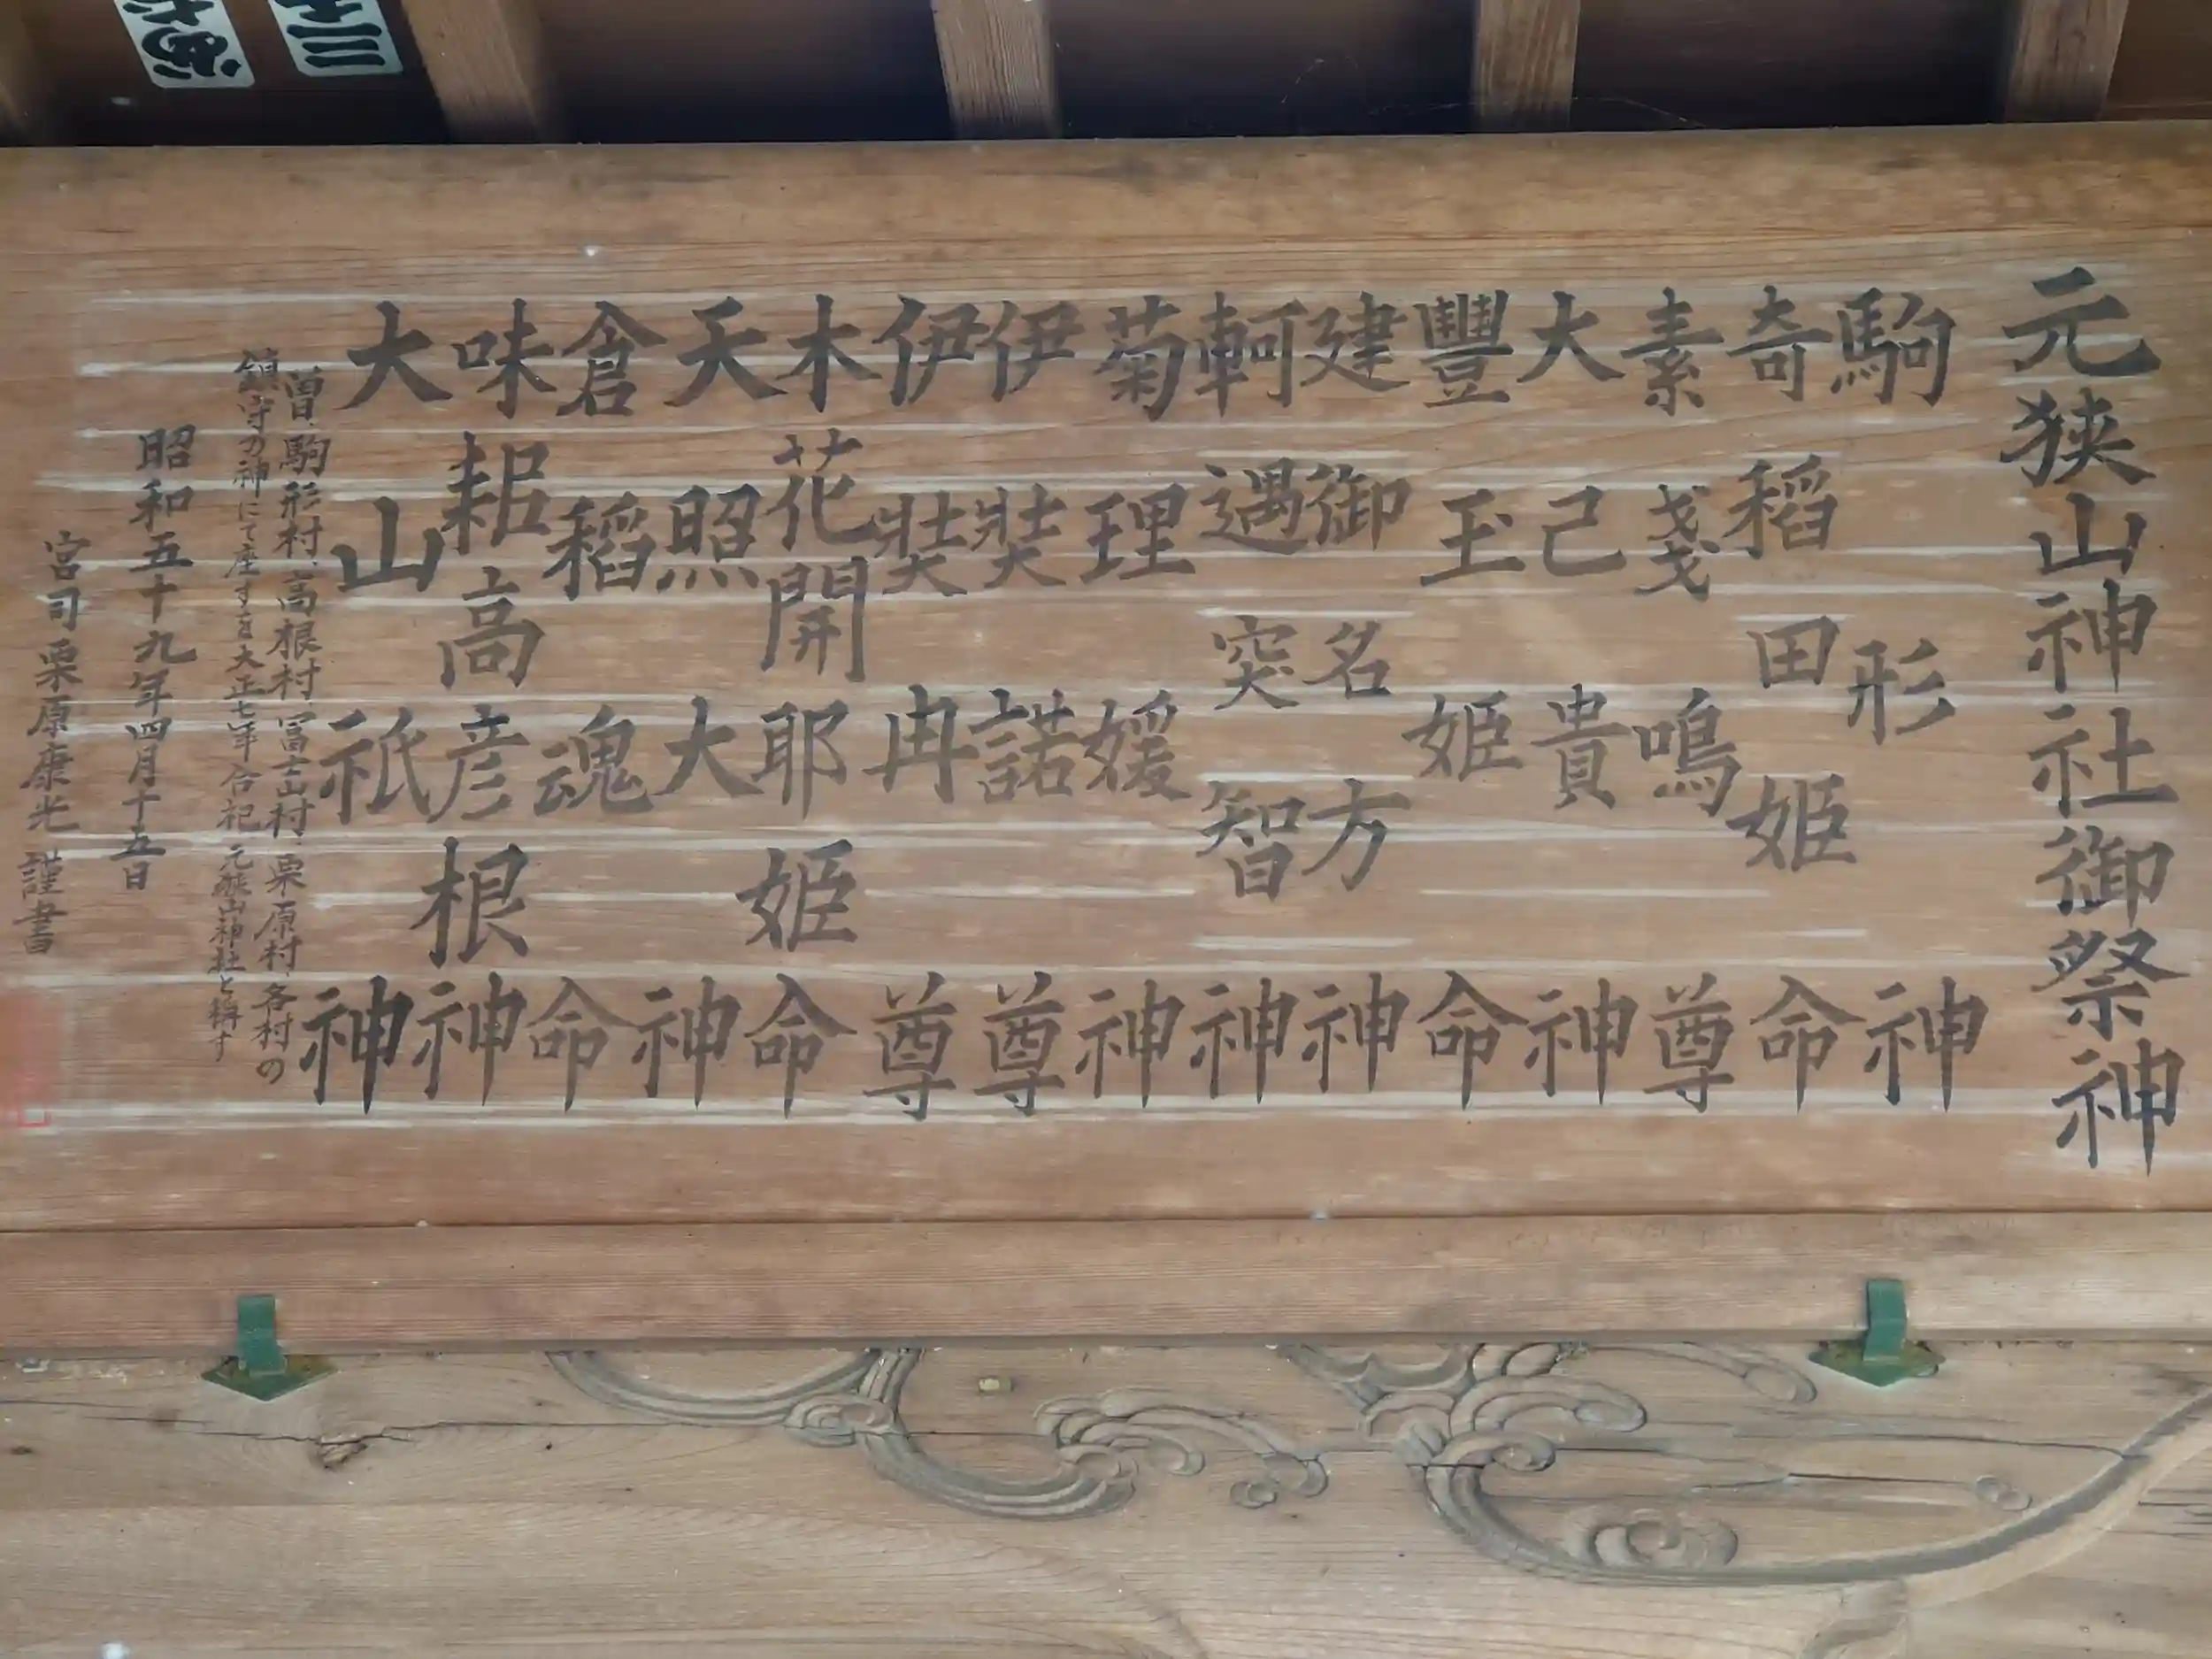 元狭山神社御祭神
駒形神
奇稲田姫命
素戔鳴尊
大己貴神
豐玉姫命
建御名方神
軻遇突智神
菊理媛神
伊弉諾尊
伊弉冉尊
木花開耶姫命
天照大神
倉稲魂命
味耜高彦根神
大山祇神
曽、駒形村、高根村、冨士山村、栗原村、各村の
鎮守の神にて座すを大正七年合祀元狭山神社と稱す
昭和五十九年四月十五日
宮司栗原康光謹書